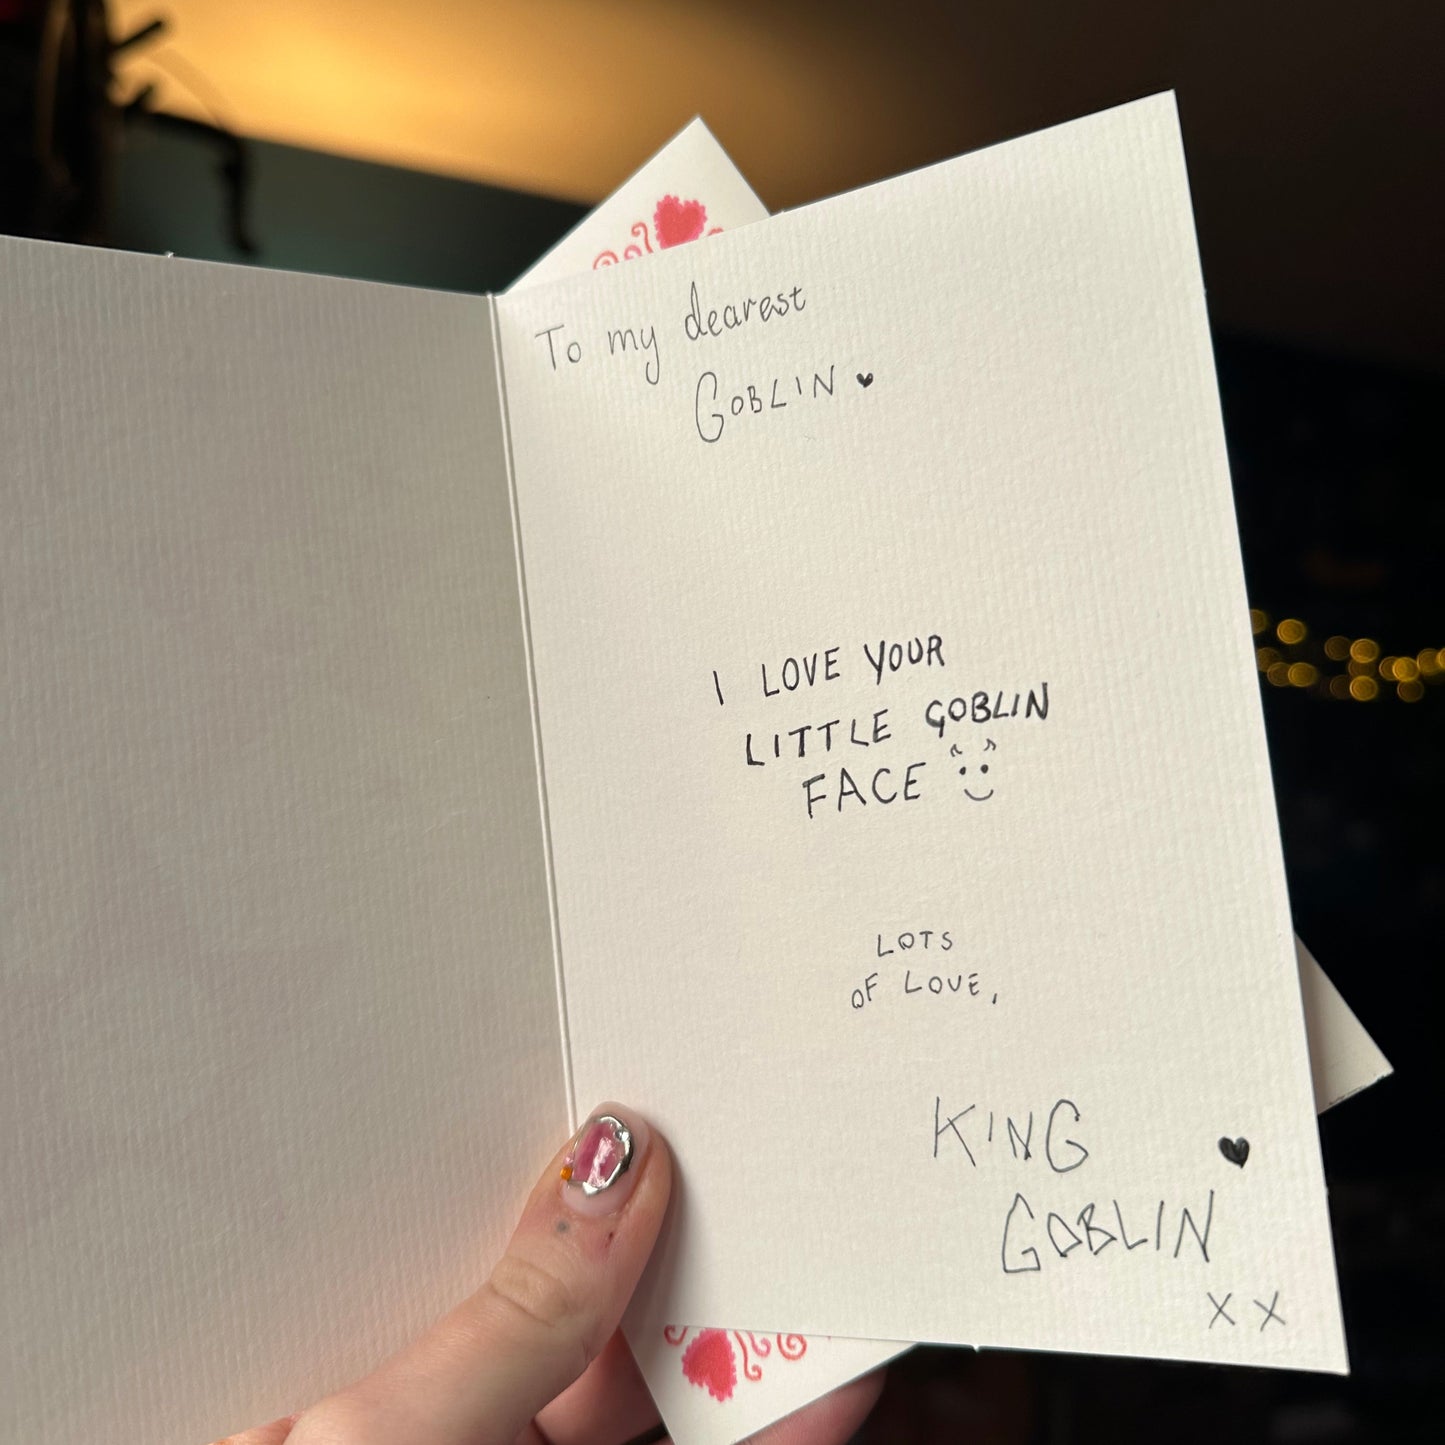 To my dearest
GOBLIN ♥
I LOVE YOUR
LITTLE GOBLIN
FACE
LOTS
OF LOVE,
KING
GOBLIN ♥
X X